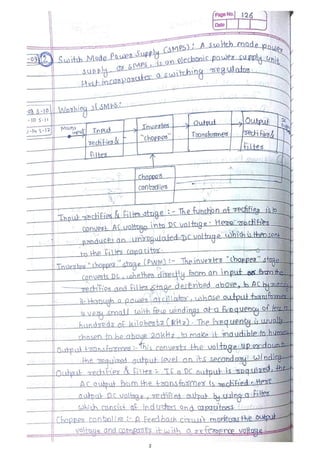 Page No. 126
Date
Switch Mode Power Supply (SMPS): A switch mode power
supply, or SMPS, is an electronic power supply unit
that incorporates a switching regulator.
Working of SMPS:
Mains input
Input rectifier & filter
Inverter "chopper"
Output Transformer
Output rectifier & filter
Chopper controller
Input rectifier & filter stage :- The function of rectifier is to
convert AC voltage into DC voltage. Here rectifier
produces an unregulated DC voltage which is then sent
to the filter capacitor.
Inverter "chopper" stage (PWM) :- The inverter "chopper" stage
converts DC, whether directly from an input or from the
rectifier and filter stage described above, to AC by
it through a power oscillator, whose output transformer
a very small with few windings at a frequency of
hundreds of kilohertz (kHz). The frequency is usually
chosen to be above 20kHz, to make it inaudible to humans
Output transformer :- This converts the voltage up or down
the required output level on its secondary winding
Output rectifier & filter :- If a DC output is required, the
AC output from the transformer is rectified. Here
output DC voltage, rectified output by using a filter
which consist of inductors and capacitors
Chopper controller :- A feedback circuit monitors the output
voltage and compares it with a reference voltage
2